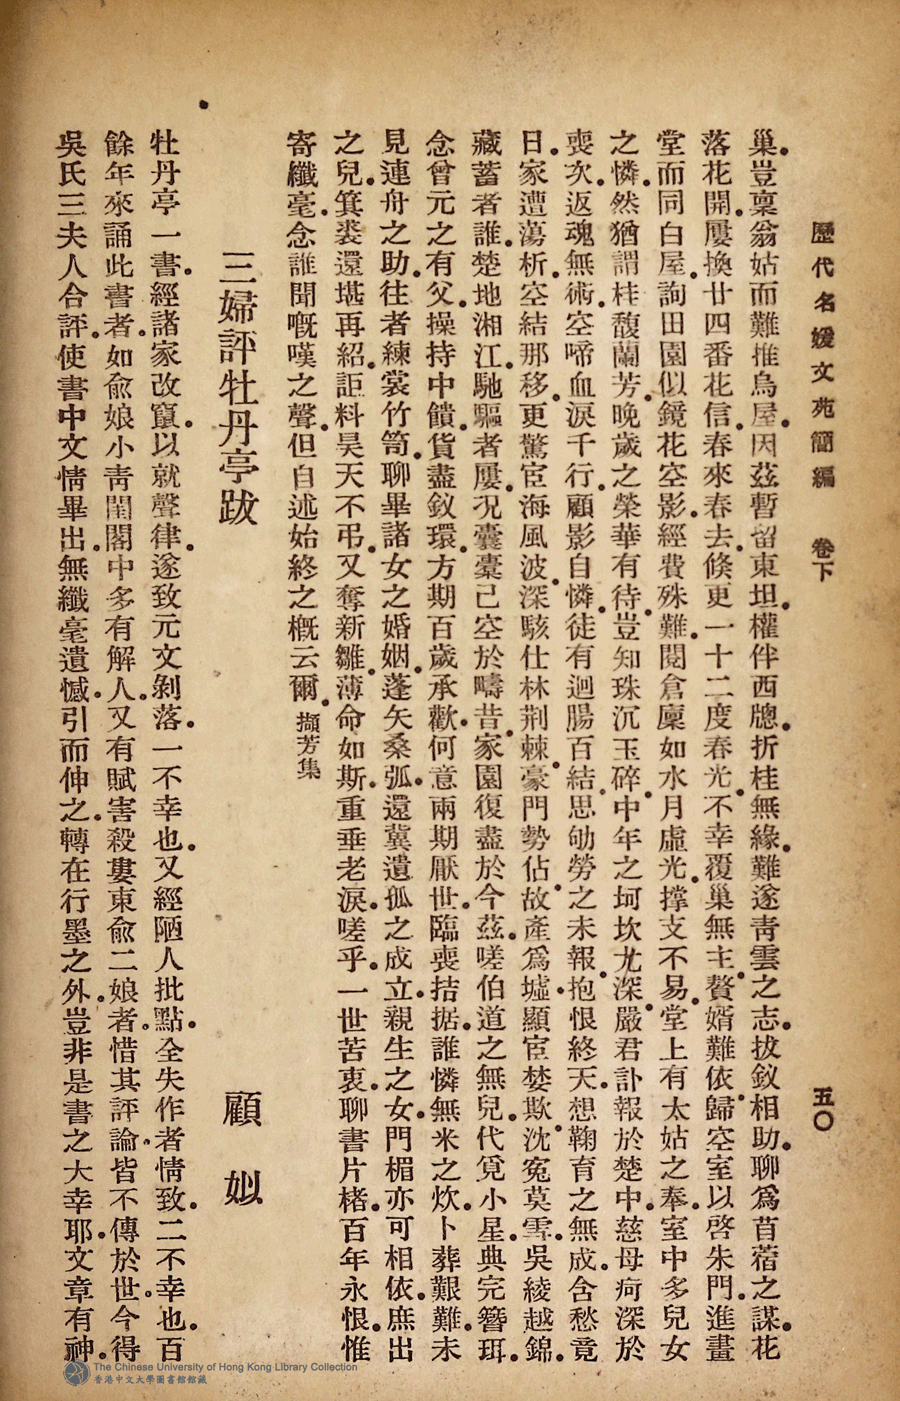 歷代名媛文苑簡編 卷下 五〇
巢。豈稟翁姑而難推烏屋。因茲暫留東坦。權伴西牕。折桂無緣。難遂靑雲之志。拔釵相助。聊爲苜蓿之謀。花
落花開。屢換廿四番花信。春來春去。倏更一十二度春光。不幸覆巢無主。贅婿難依。歸空室以啓朱門。進畫
堂而同白屋。詢田園似鏡花空影。經費殊難。閱倉廩如水月虛光。撑支不易。堂上有太姑之奉。室中多兒女
之憐。然猶謂桂馥蘭芳。晚歲之榮華有待。豈知珠沉玉碎。中年之坷坎尤深。嚴君訃報於楚中。慈母疴深於
喪次。返魂無術。空啼血淚千行。顧影自憐。徒有迴腸百結。思劬勞之未報。抱恨終天。想鞠育之無成。含愁竟
日。家遭蕩析。空結那移。更驚宦海風波。深駭仕林荆棘。豪門勢佔。故產爲墟。顯宦婪欺。沈寃莫雪。吳綾越錦。
藏蓄者誰。楚地湘江。馳驅者屢。況囊橐已空於疇昔。家園復盡於今茲。嗟伯道之無兒。代覓小星。典完簪珥。
念曾元之有父。操持中饋。貨盡釵環。方期百歲承歡。何意兩期厭世。臨喪拮据。誰憐無米之炊。卜葬艱難。未
見連舟之助。往者練裳竹笥。聊畢諸女之婚姻。蓬矢桑弧。還冀遺孤之成立。親生之女。門楣亦可相依。庶出
之兒。箕裘還堪再紹。詎料昊天不弔。又奪新雛。薄命如斯。重垂老淚。嗟乎。一世苦衷。聊書片楮。百年永恨。惟
寄纖毫。念誰聞嘅嘆之聲。但自述始終之槪云爾。擷芳集
三婦評牡丹亭跋 顧姒
牡丹亭一書。經諸家改竄。以就聲律。遂致元文剝落。一不幸也。又經陋人批點。全失作者情致。二不幸也。百
餘年來誦此書者。如兪娘小靑。閨閣中多有解人。又有賦害殺婁東兪二娘者。惜其評論。皆不傳於世。今得
吳氏三夫人合評。使書中文情畢出。無纖毫遺憾。引而伸之。轉在行墨之外。豈非是書之大幸耶。文章有神。
The Chinese University of Hong Kong Library Collection
香港中文大學圖書館館藏